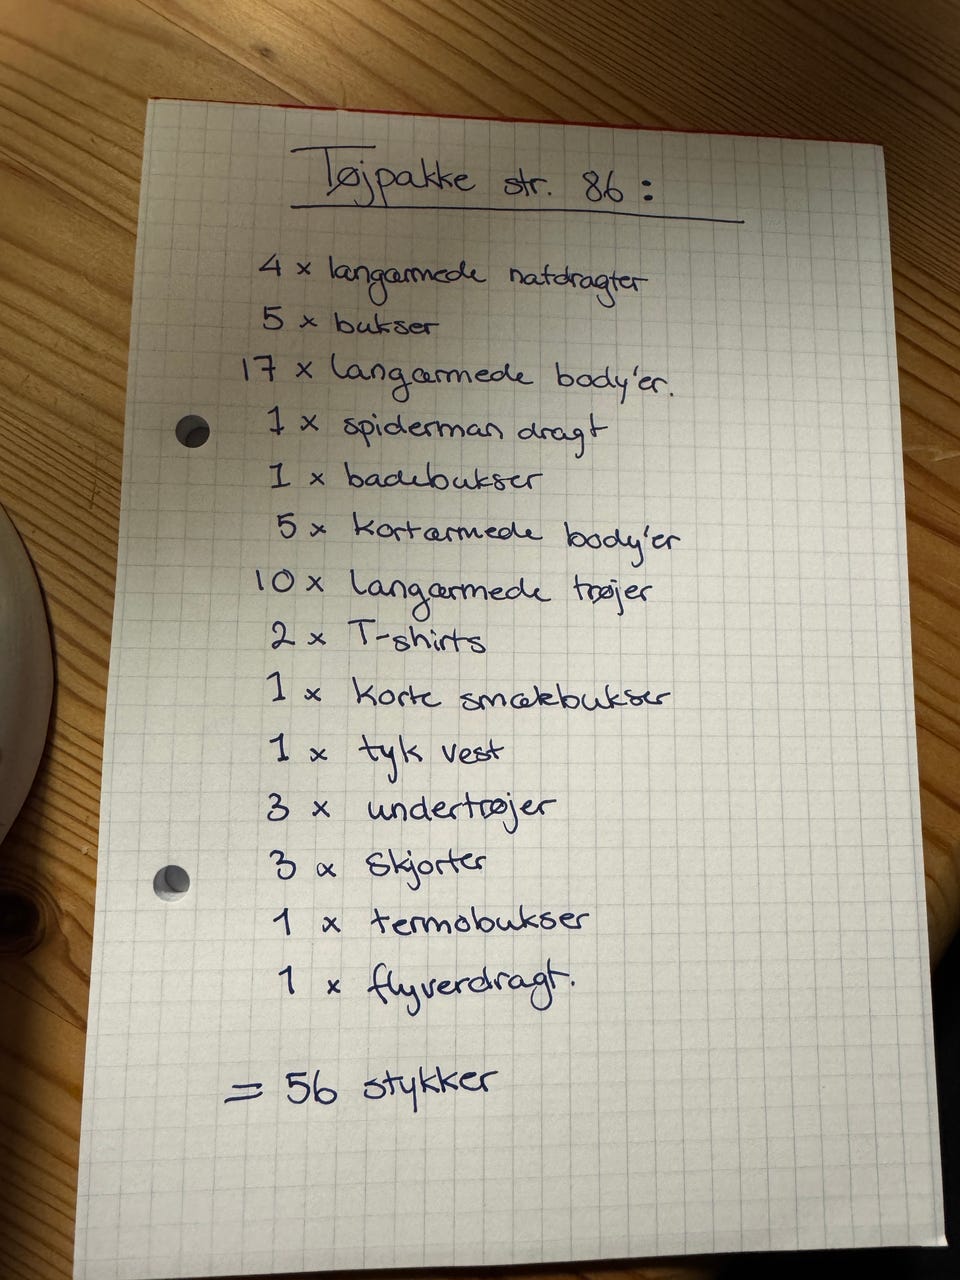 Tøjpakke str. 86:
4 x langærmede natdragter
5 x bukser
17 x langærmede body'er.
1 x spiderman dragt
1 x badebukser
5 x kortærmede body'er
10 x langærmede trøjer
2 x T-shirts
1 x korte smækbukser
1 x tyk vest
3 x undertrøjer
3 x skjorter
1 x termobukser
1 x flyverdragt.
= 56 stykker